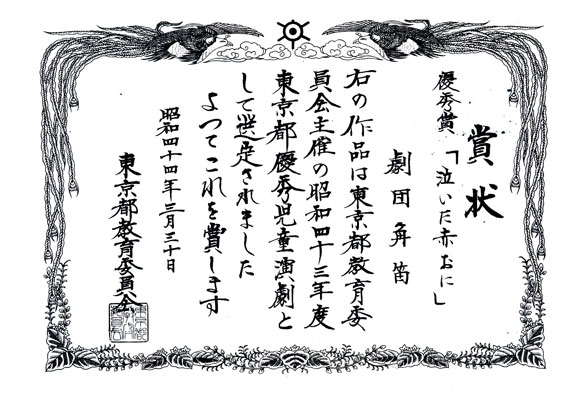 賞状
優秀賞 「泣いた赤おに」
劇団角笛
右の作品は東京都教育委
員会主催の昭和四十三年度
東京都優秀児童演劇と
して選定されました
よつてこれを賞します
昭和四十四年三月三十日
東京都教育委員会